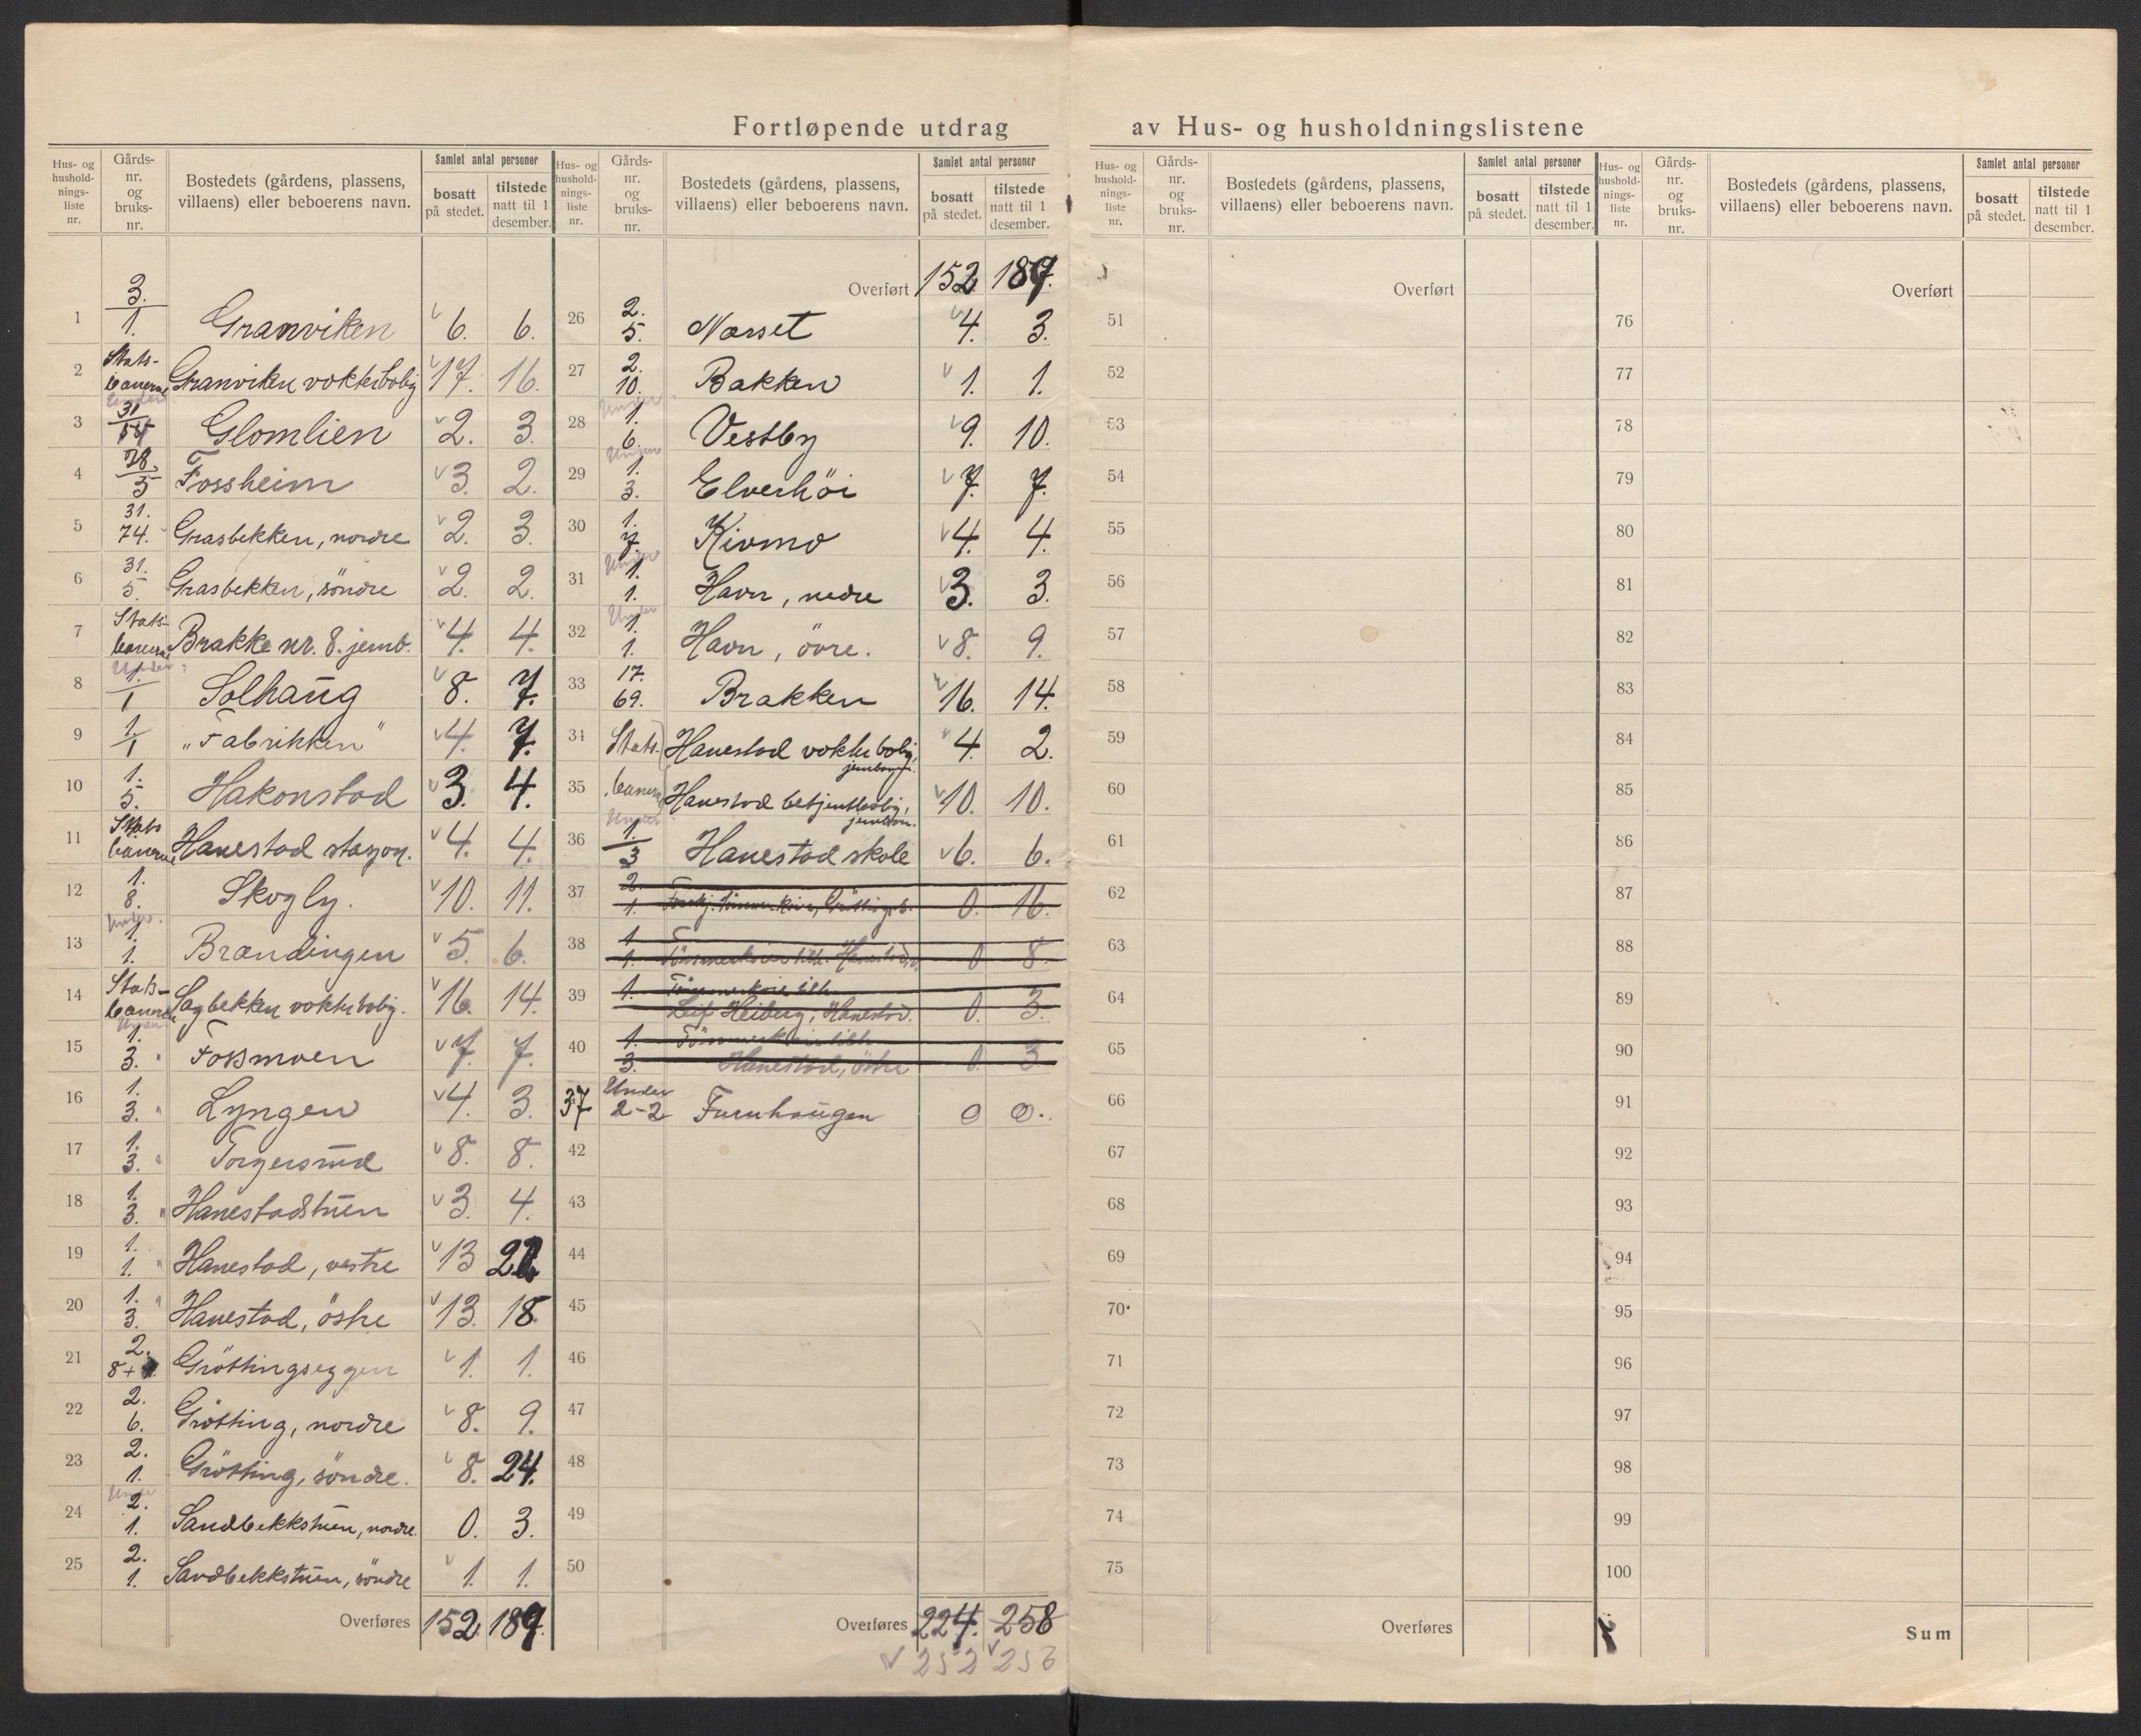 Fortløpende utdrag av Hus- og husholdningslistene
Hus- og hushold-nings-liste nr. Gårds-nr. og bruks-nr. Bostedets (gårdens, plassens, villaens) eller beboerens navn. Samlet antal personer bosatt på stedet. tilstede natt til 1 desember.
1 3. 1. Granviken 6. 6.
2 Stats-banerne Granviken vokterbolig 17. 16.
3 Under 31 Glomlien 2. 3.
4 78. 5 Fossheim 3. 2.
5 31. 74. Grasbekken, nordre 2. 3.
6 31. 5. Grasbekken, söndre 2. 2.
7 Stats-banerne Brakke nr. 8. jernb. 4. 4.
8 Under 1. 1 Solhaug 8. 7.
9 1. 1 „Fabrikken" 4. 7.
10 1. 5. Hakonstad 3. 4.
11 Stats banerne Hanestad stasjon. 4. 4.
12 1. 8. Skogly. 10. 11.
13 Under. 1. 1. Brændingen 5. 6.
14 Stats-banerne Sagbekken vokterbolig. 16. 14.
15 Under 1. 3. " Fossmoen 7. 7.
16 1. 3. " Lyngen 4. 3.
17 1. 3. " Torgersrud 8. 8.
18 1. 3. " Hanestadstuen 3. 4.
19 1. 1. " Hanestad, vestre 13
20 1. 3. " Hanestad, östre 13. 18.
21 2. 8+ Gröttingseggen 1. 1.
22 2. 6. Grötting, nordre 8. 9.
23 2. 1. Grötting, söndre. 8. 24.
24 Under 2. 1. Sandbekkstuen, nordre. 0. 3.
25 2. 1. Sandbekkstuen, söndre 1. 1.
Overføres 152. 189.
Hus- og hushold-nings-liste nr. Gårds-nr. og bruks-nr. Bostedets (gårdens, plassens, villaens) eller beboerens navn. Samlet antal personer bosatt på stedet. tilstede natt til 1 desember.
Overført 152 189.
26 2. 5. Norset 4. 3.
27 2. 10. Bakken 1. 1.
28 Under 1. 6. Vestby 9. 10.
29 Under 1. 3. Elverhöi 7. 7.
30 1. 7. Kivmo 4. 4.
31 Under 1. 1. Havn, nedre 3. 3.
32 Under 1. 1. Havn, övre. 8. 9.
33 17. 69. Brakken 16. 14.
34 Stats- Hanestad vokterbolig, 4. 2.
35 banerne Hanestad betjentbolig, 10. 10.
36 Under 1. 3 Hanestad skole 6. 6.
37 2. 1. 0. 16.
38 1 1. 0 8.
39 1. Tömmerkoie tilh. Leif Heiberg, Hanestad. 0. 3.
40 1. 3. Tömmerkoie tilh. Hanestad, östre 0. 3
37 Under 2-2 Furuhaugen 0 0.
42
43
44
45
46
47
48
49
50
Overføres 224. 258
252 256
Hus- og hushold-nings-liste nr. Gårds-nr. og bruks-nr. Bostedets (gårdens, plassens, villaens) eller beboerens navn. Samlet antal personer bosatt på stedet. tilstede natt til 1 desember.
Overført
51
52
53
54
55
56
57
58
59
60
61
62
63
64
65
66
67
68
69
70
71
72
73
74
75
Overføres
Hus- og hushold-nings-liste nr. Gårds-nr. og bruks-nr. Bostedets (gårdens, plassens, villaens) eller beboerens navn. Samlet antal personer bosatt på stedet. tilstede natt til 1 desember.
Overført
76
77
78
79
80
81
82
83
84
85
86
87
88
89
90
91
92
93
94
95
96
97
98
99
100
Sum